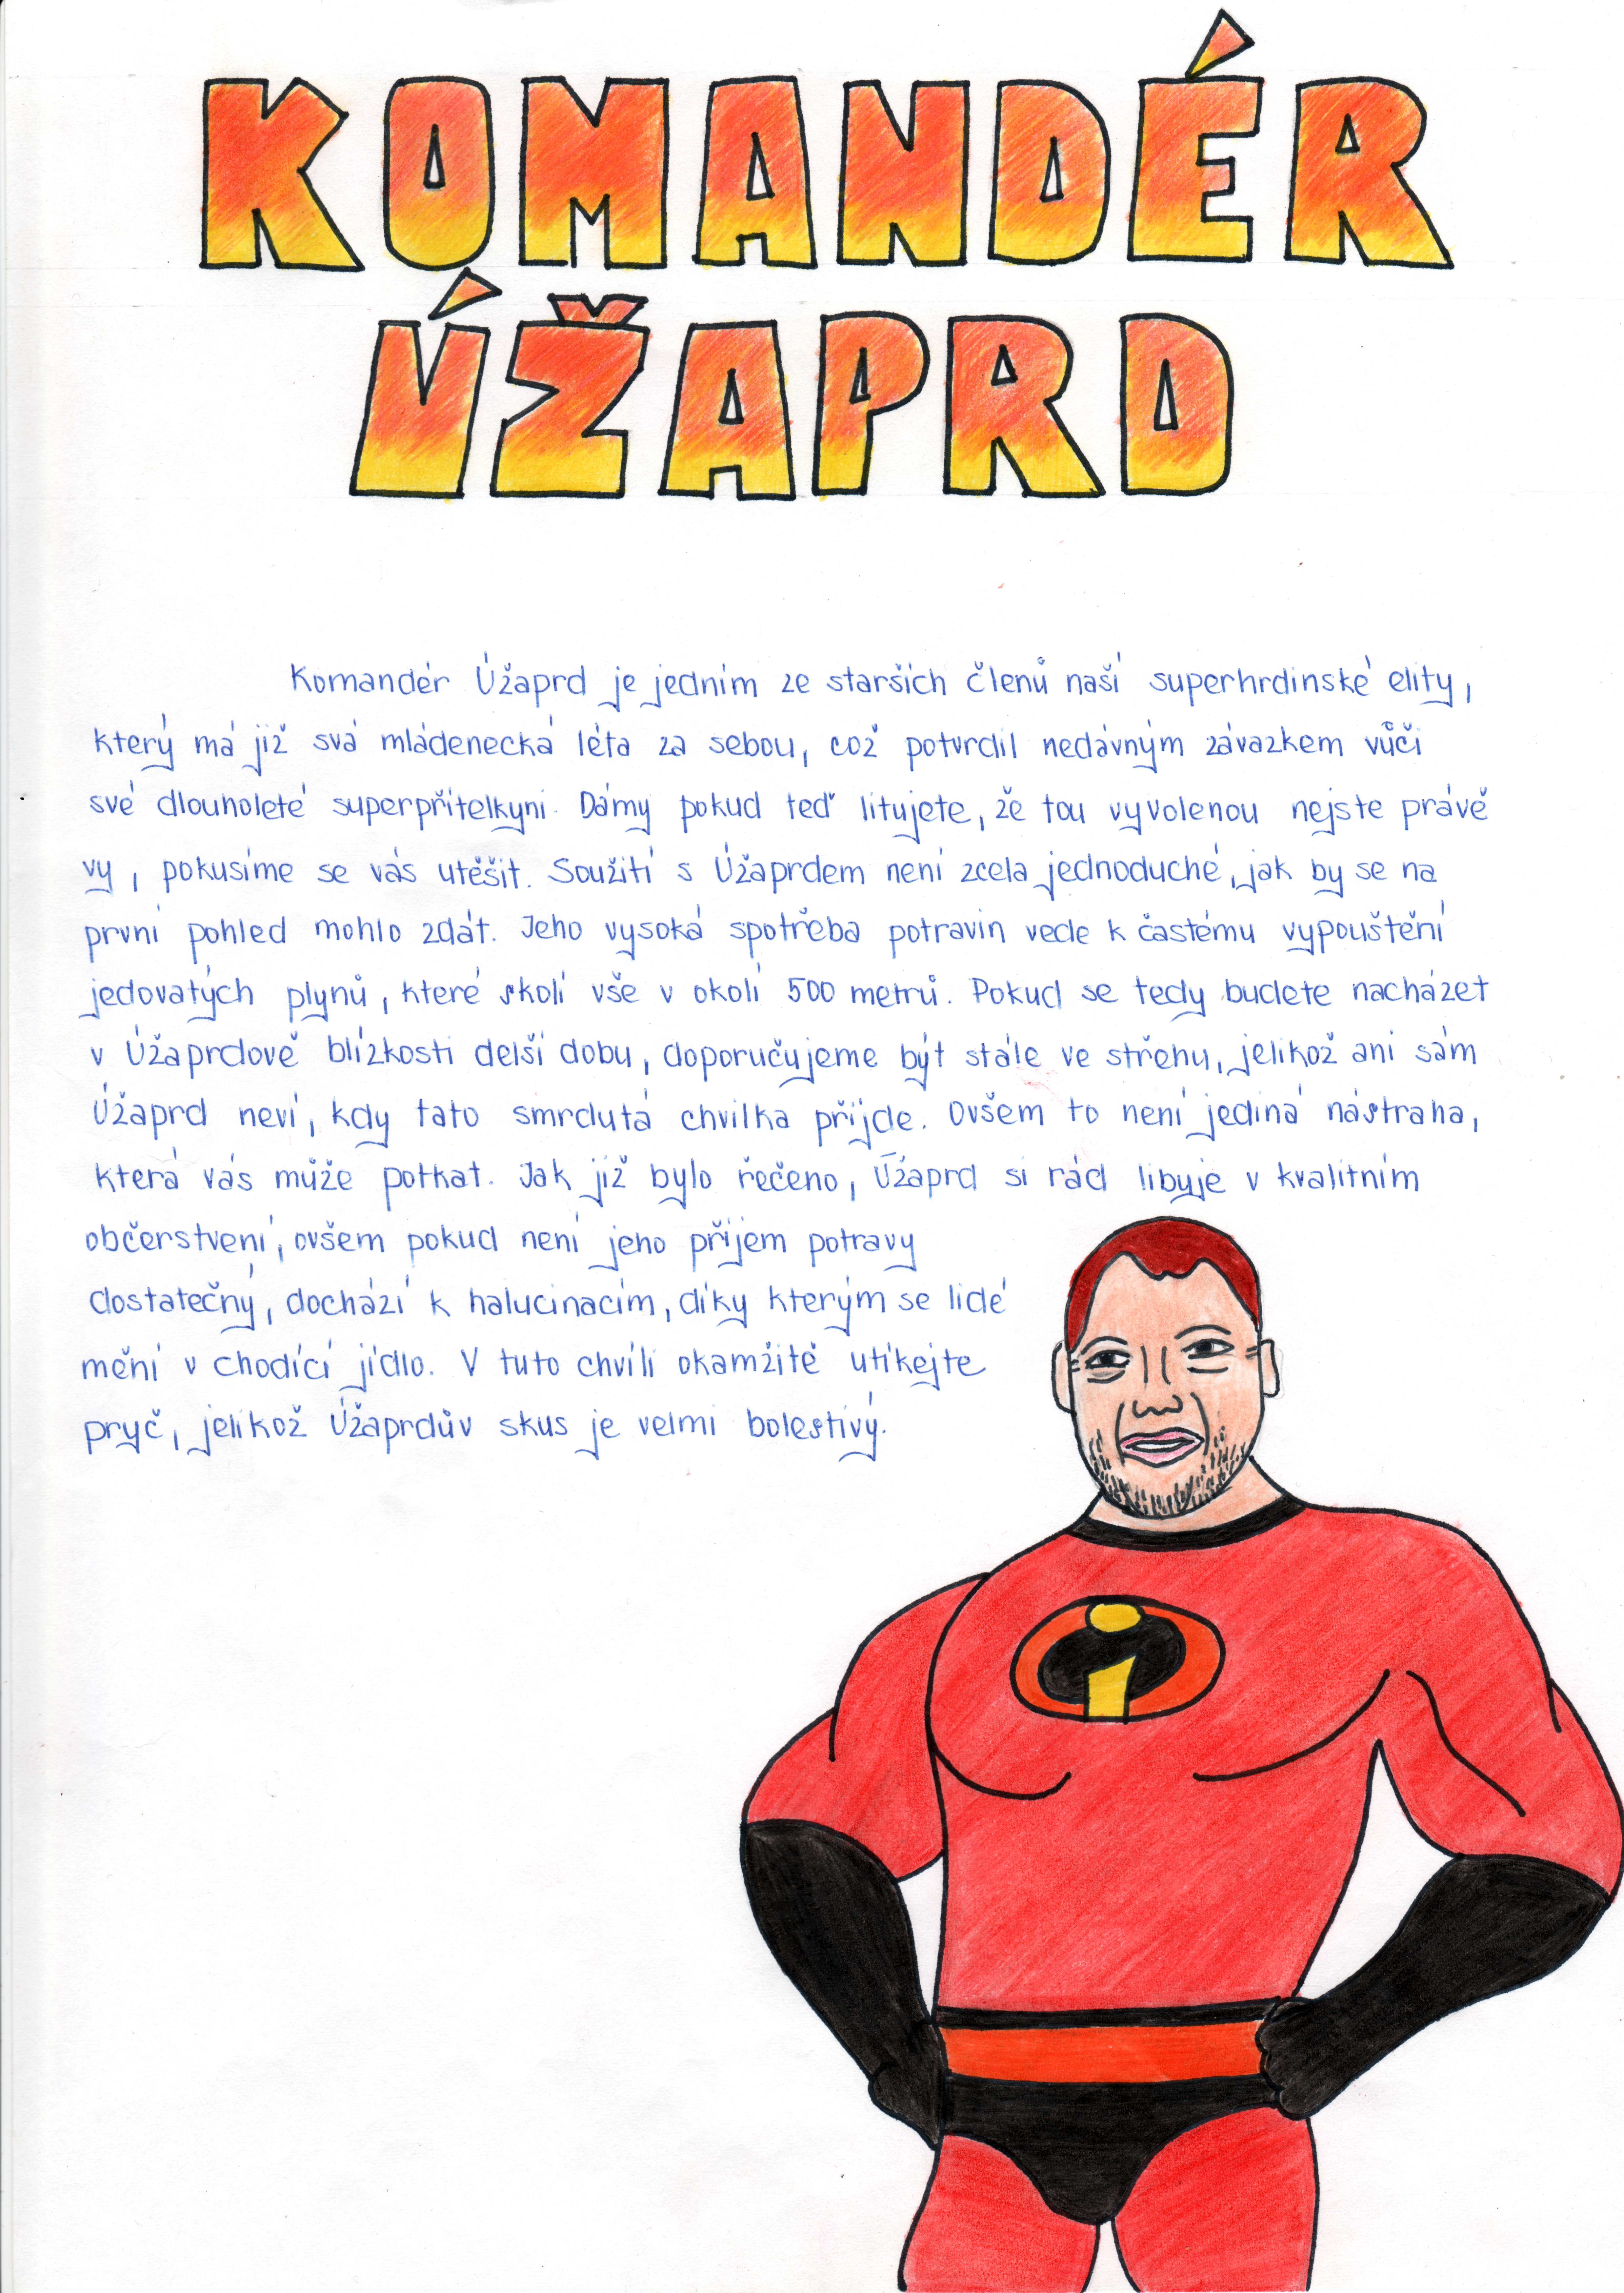 KOMANDÉR
ÚŽAPRD
Komandér Úžaprd je jedním ze starších členů naší superhrdinské elity,
který má již svá mládenecká léta za sebou, což potvrdil nedávným závazkem vůči
své dlouholeté superpřítelkyni. Dámy pokud teď litujete, že tou vyvolenou nejste právě
vy, pokusíme se vás utěšit. Soužití s Úžaprdem není zcela jednoduché, jak by se na
první pohled mohlo zdát. Jeho vysoká spotřeba potravin vede k častému vypouštění
jedovatých plynů, které skolí vše v okolí 500 metrů. Pokud se tedy budete nacházet
v Úžaprdově blízkosti delší dobu, doporučujeme být stále ve střehu, jelikož ani sám
Úžaprd neví, kdy tato smrdutá chvilka přijde. Ovšem to není jediná nástraha,
která vás může potkat. Jak již bylo řečeno, Úžaprd si rád libuje v kvalitním
občerstvení, ovšem pokud není jeho příjem potravy
dostatečný, dochází k halucinacím, díky kterým se lidé
mění v chodící jídlo. V tuto chvíli okamžitě utíkejte
pryč, jelikož Úžaprdův skus je velmi bolestivý.